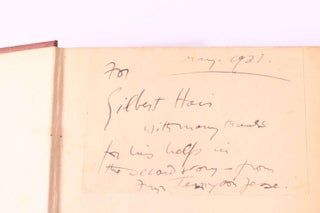 May. 1927.
For
Gilbert Hair
with many thanks
for his help in
the second wrong - from
Fryn Tennyson Jesse.